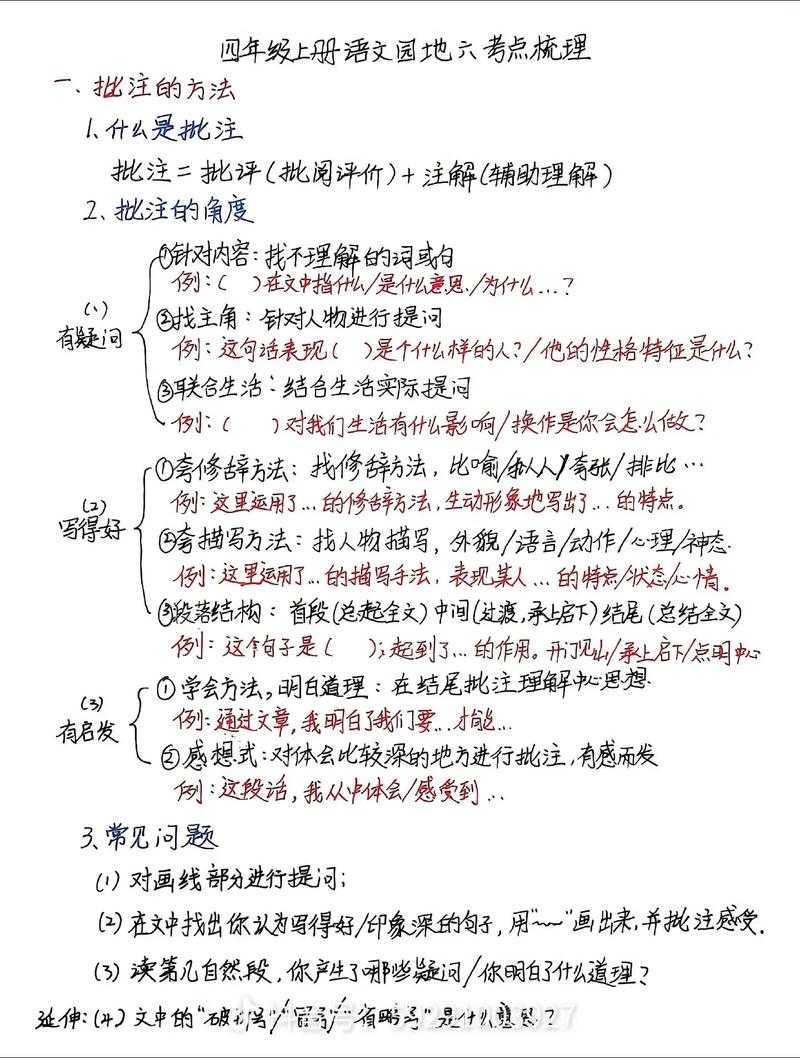 四年级上册语文园地六考点梳理
一、批注的方法
1、什么是批注
批注=批评(批阅评价)+注解(辅助理解)
2、批注的角度
(1)有疑问
①针对内容:找不理解的词或句
例:( )在文中指什么/是什么意思/为什么…?
②找主角:针对人物进行提问
例:这句话表现( )是个什么样的人?/他的性格特征是什么?
③联合生活:结合生活实际提问
例:( )对我们生活有什么影响/换作是你会怎么做?
(2)写得好
①夸修辞方法:找修辞方法,比喻/拟人/夸张/排比…
例:这里运用了…的修辞方法,生动形象地写出了…的特点。
②夸描写方法:找人物描写,外貌/语言/动作/心理/神态.
例:这里运用了…的描写手法,表现某人…的特点/状态/心情.
③段落结构:首段(总起全文)中间(过渡,承上启下)结尾(总结全文)
例:这个句子是( );起到了…的作用。开门见山/承上启下/点明中心
(3)有启发
①学会方法,明白道理:在结尾批注理解中心思想.
例:通过文章,我明白了我们要…才能…
②感想式:对体会比较深的地方进行批注,有感而发
例:这段话,我从中体会/感受到…
3、常见问题
(1)对画线部分进行提问;
(2)在文中找出你认为写得好/印象深的句子,用"﹏"画出来,并批注感受.
(3)读第几自然段,你产生了哪些疑问/你明白了什么道理?
延伸:(4)文中的"破折号"/"冒号"/"省略号"是什么意思?